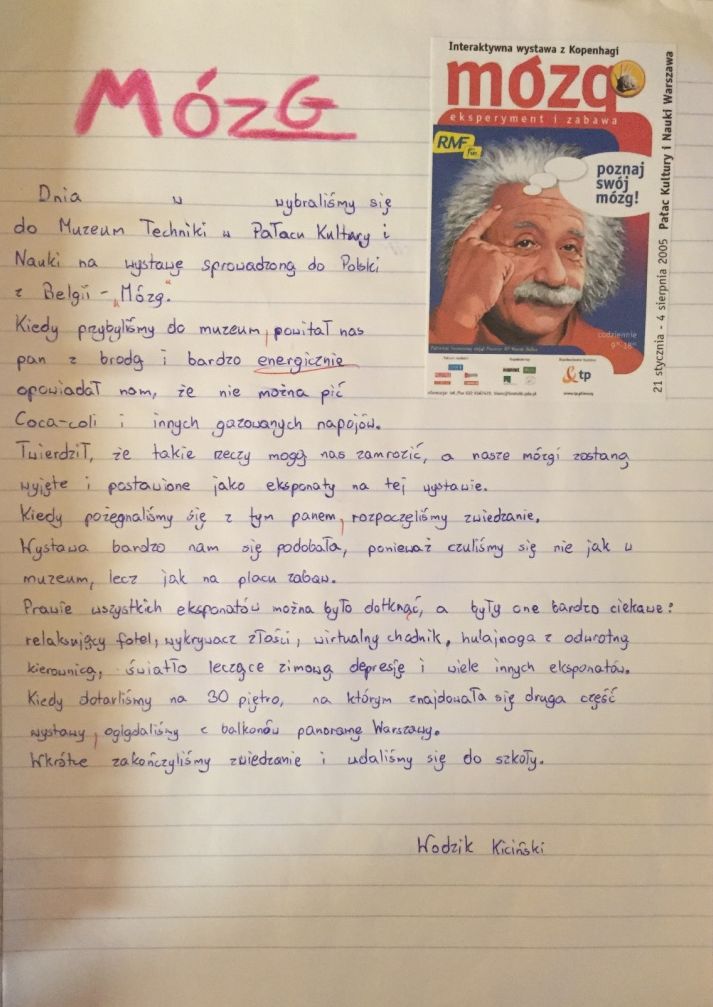 MÓZG
Interaktywna wystawa z Kopenhagi
mózg
eksperyment i zabawa
RMF FM
poznaj
swój
mózg!
codziennie
21 stycznia - 4 sierpnia 2005 Pałac Kultury i Nauki Warszawa
tp
Dnia w wybraliśmy się
do Muzeum Techniki w Pałacu Kultury i
Nauki na wystawę sprowadzoną do Polski
z Belgii - „Mózg."
Kiedy przybyliśmy do muzeum, powitał nas
pan z brodą i bardzo energicznie
opowiadał nam, że nie można pić
Coca-coli i innych gazowanych napojów.
Twierdził, że takie rzeczy mogą nas zamrozić, a nasze mózgi zostaną
wyjęte i postawione jako eksponaty na tej wystawie.
Kiedy pożegnaliśmy się z tym panem, rozpoczęliśmy zwiedzanie.
Wystawa bardzo nam się podobała, ponieważ czuliśmy się nie jak w
muzeum, lecz jak na placu zabaw.
Prawie wszystkich eksponatów można było dotknąć, a były one bardzo ciekawe:
relaksujący fotel, wykrywacz złości, wirtualny chodnik, hulajnoga z odwrotną
kierownicą, światło leczące zimową depresję i wiele innych eksponatów.
Kiedy dotarliśmy na 30 piętro, na którym znajdowała się druga część
wystawy, oglądaliśmy z balkonów panoramę Warszawy.
Wkrótce zakończyliśmy zwiedzanie i udaliśmy się do szkoły.
Wodzik Kiciński